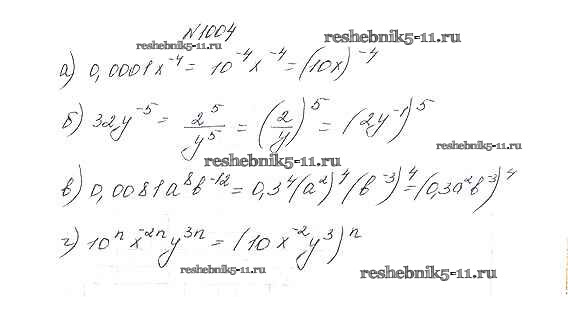 №1004
reshebnik5-11.ru reshebnik5-11.ru
а) 0,0001x⁻⁴ = 10⁻⁴x⁻⁴ = (10x)⁻⁴
б) 32y⁻⁵ = 2⁵/y⁵ = (2/y)⁵ = (2y⁻¹)⁵
reshebnik5-11.ru
reshebnik5-11.ru
в) 0,0081a⁸b⁻¹² = 0,3⁴(a²)⁴(b⁻³)⁴ = (0,3a²b⁻³)⁴
г) 10ⁿx⁻²ⁿy³ⁿ = (10x⁻²y³)ⁿ
reshebnik5-11.ru reshebnik5-11.ru